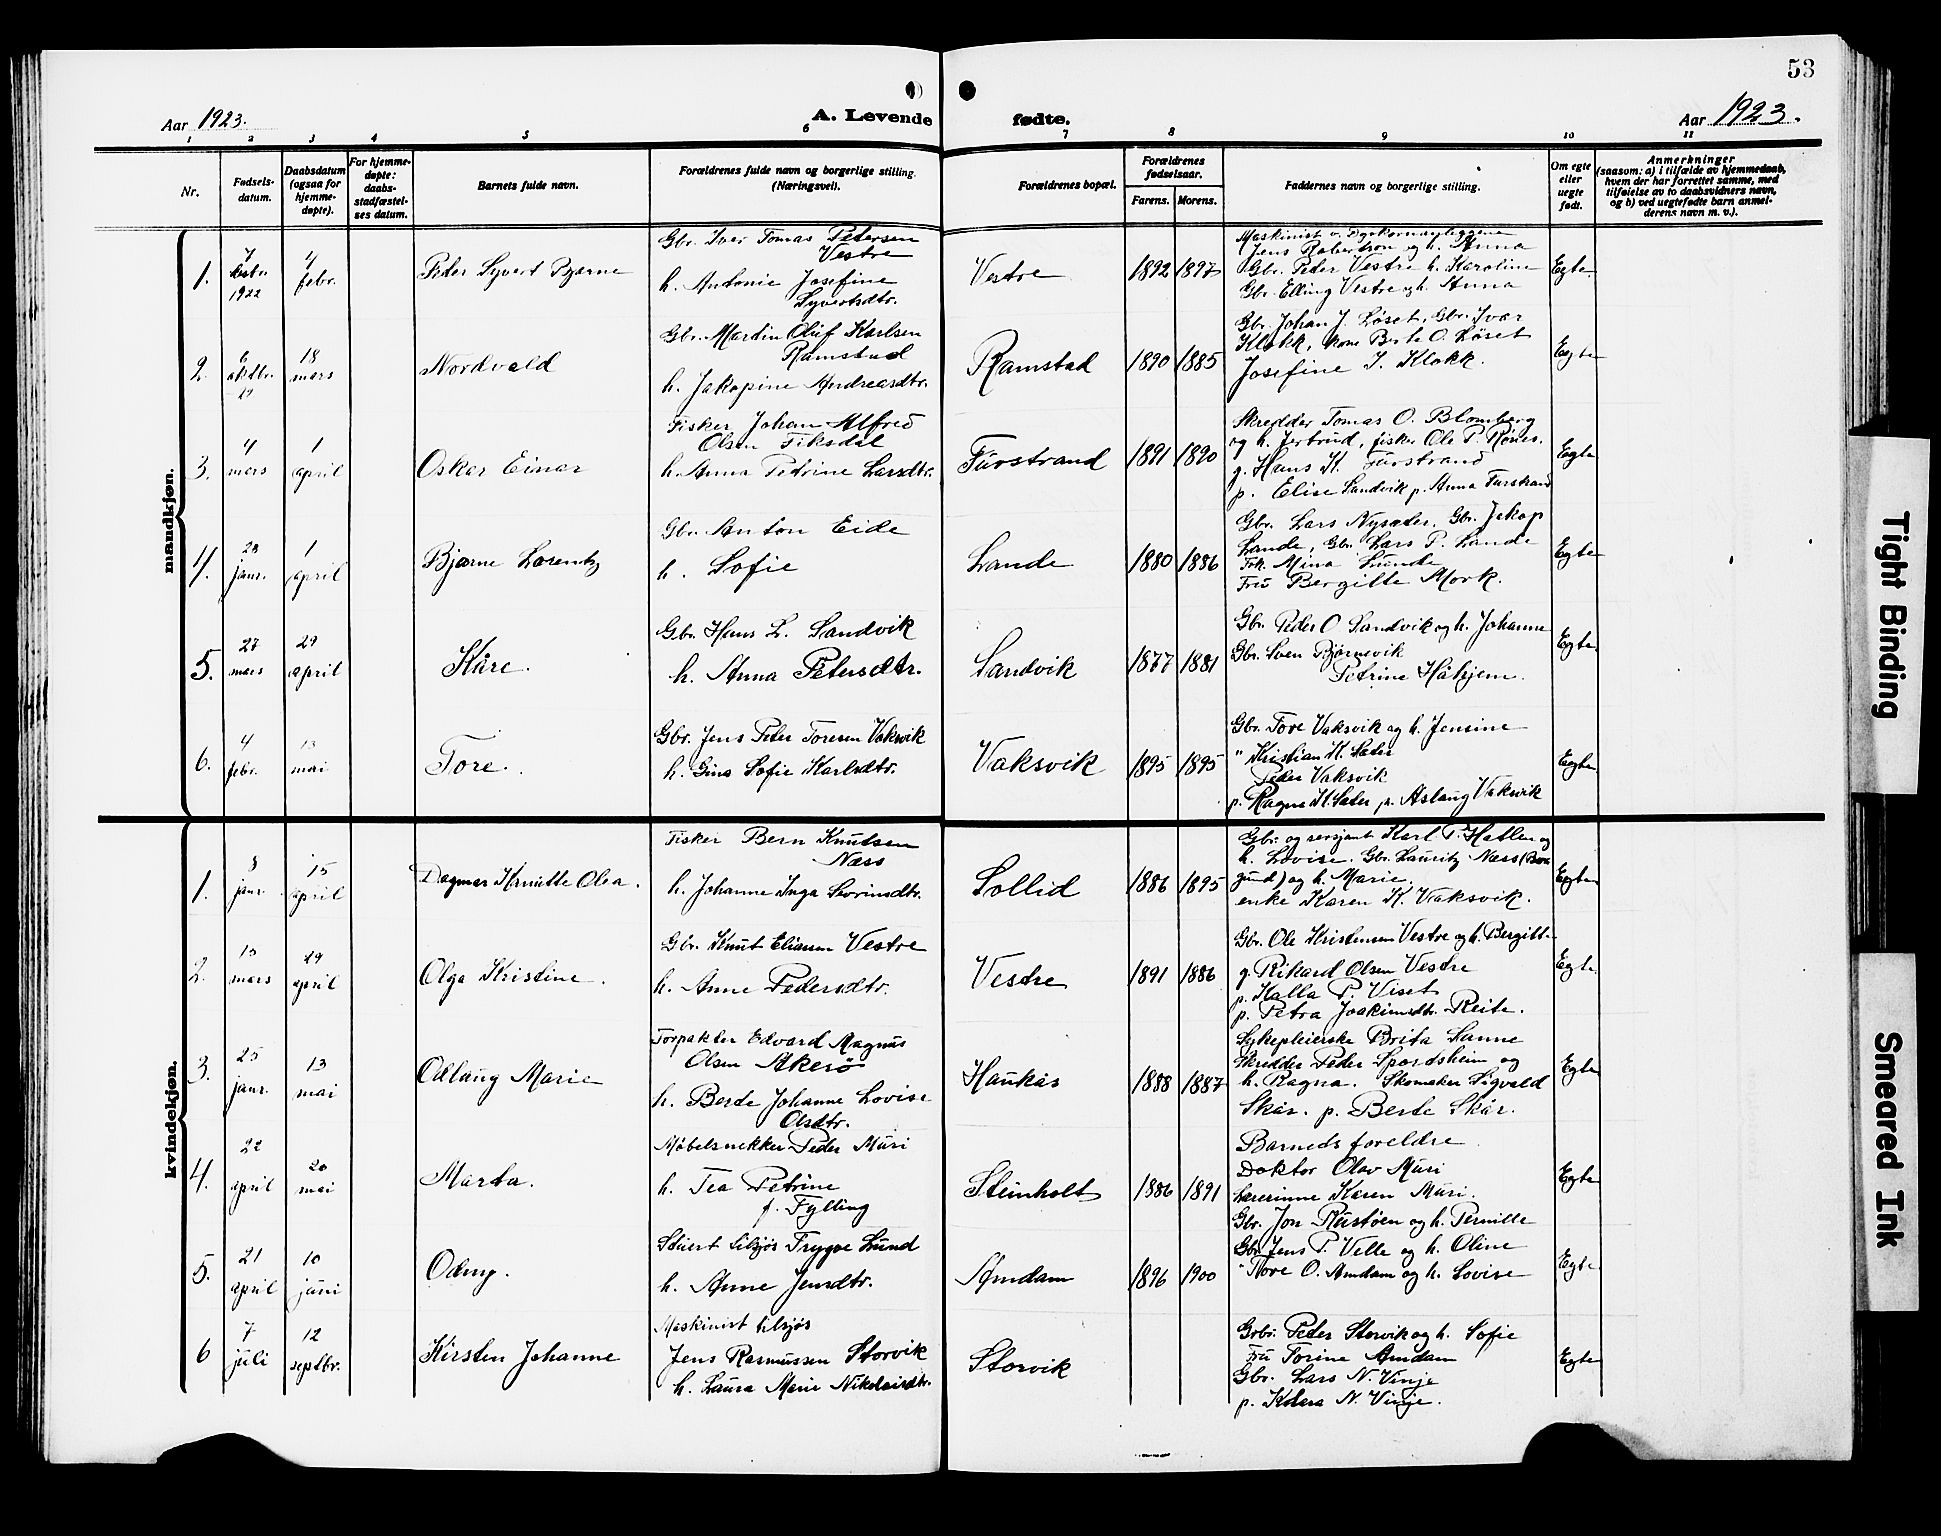 53
Aar 1923.
A. Levende fødte.
Aar 1923.
1 2 3 4 5 6 7 8 9 10 11
Nr.
Fødsels-
datum.
Daabsdatum
(ogsaa for
hjemme-
døpte).
For hjemme-
døpte:
daabs-
stadfæstel-
ses datum.
Barnets fulde navn.
Forældrenes fulde navn og borgerlige stilling.
(Næringsvei).
Forældrenes bopæl.
Forældrenes
fødselsaar.
Farens. Morens.
Faddernes navn og borgerlige stilling.
Om egte
eller
uegte
født.
Anmerkninger
(saasom: a) i tilfælde av hjemmedaab,
hvem der har forrettet samme, med
tilføielse av to daabsvidners navn,
og b) ved uegtefødte barn anmel-
derens navn m. v.).
mandkjøn.
1.
7
1922
4
febr.
Peder Syvert Bjarne
Gbr. Iver Tomas Petersen
Vestre
h. Antonie Josefine
Syvertsdtr.
Vestre
1892 1897
Maskinist v.
Jens Robertson og h. Anna
Gbr. Peder Vestre h. Karoline
Gbr. Elling Vestre og h. Anna
Egte
2.
6
oktbr.
18
mars
Nordvald
Gbr. Martin Oluf Karlsen
Ramstad
h. Jakopine Andreasdtr.
Ramstad
1890 1885
Gbr. Johan J. Løset, Gbr. Ivar
Klokk, kone Berte O. Løset
Josefine I. Klokk.
Egte
3.
4
mars
1
april
Oskar Einar
Fisker Johan Alfred
Olsen Fiksdal
h. Anna Petrine Larsdtr.
Furstrand
1891 1890
Skredder Tomas O. Blomberg
og h. Jertrud, fisker Ole P.
g. Hans K. Furstrand
p. Elise Sandvik p. Anna Furstrand
Egte
4.
28
janr.
1
april
Bjarne Lorentz
Gbr. Anton Eide
h. Sofie
Lande
1880 1886
Gbr. Lars Nysæter. Gbr. Jakop
Lande, Gbr. Lars P. Lande
Frk. Mina Lunde
Fru Bergitte Mork.
Egte
5.
27
mars
29
april
Kåre.
Gbr. Hans L. Sandvik
h. Anna Petersdtr.
Sandvik
1877 1881
Gbr. Peder O Sandvik og h. Johanne
Gbr. Sven Bjørnevik
Petrine Håhjem.
Egte
6.
4
febr.
13
mai
Tore.
Gbr. Jens Peter Toresen Vaksvik
h. Gina Sofie Karlsdtr.
Vaksvik
1895 1895
Gbr. Tore Vaksvik og h. Jensine
" Kristian K. Sæter
Peder Vaksvik
p. Ragna K. Sæter p. Aslaug Vaksvik
Egte
kvindekjøn.
1.
8
janr.
15
april
Dagmar Harriette Olea.
Fisker Bern Knutsen
Næss
h. Johanne Inga Severinsdtr.
Sollid
1886 1895
Gbr. og sersjant Karl P. Hatlen og
h. Lovise. Gbr. Lauritz Næss (Bor-
gund) og h. Marie.
enke Karen K. Vaksvik.
Egte
2.
15
mars
29
april
Olga Kristine.
Gbr. Knut Eliassen Vestre
h. Anne Pedersdtr.
Vestre
1891 1886
Gbr. Ole Kristensen Vestre og h. Bergitte
g. Rikard Olsen Vestre
p. Kalla P. Viset
p. Petra Joakimsdtr. Reite.
Egte
3.
25
janr.
13
mai
Odlaug Marie
Forpakter Edvard Magnus
Olsen Akerø
h. Berte Johanne Lovise
Olsdtr.
Haukås
1888 1887
Sykepleierske Brita Sanne
Skredder Peder Spordsheim og
h. Ragna. Skomaker Sigvald
Skår. p. Berte Skår.
Egte
4.
22
april
20
mai
Marta.
Møbelsnekker Peder Muri
h. Tea Petrine
f. Fylling
Steinholt
1886 1891
Barnets foreldre
Doktor Olav Muri
Lærerinne Karen Muri.
Gbr. Jon Rustøen og h. Pernille
Egte
5.
21
april
10
juni
Odny.
Stuert tilsjøs Trygve Lund
h. Anne Jensdtr.
Amdam
1896 1900
Gbr. Jens P. Velle og h. Oline
" Tore O. Amdam og h. Lovise
Egte
6
7
juli
12
septbr.
Kirsten Johanne
Maskinist tilsjøs
Jens Rasmussen Storvik
h. Laura Marie Nikolaisdtr.
Storvik
Gbr. Peder Storvik og h. Sofie
Fru Torine Amdam
Gbr. Lars N. Vinje
p. Klara N. Vinje.
Egte
Tight Binding
Smeared Ink